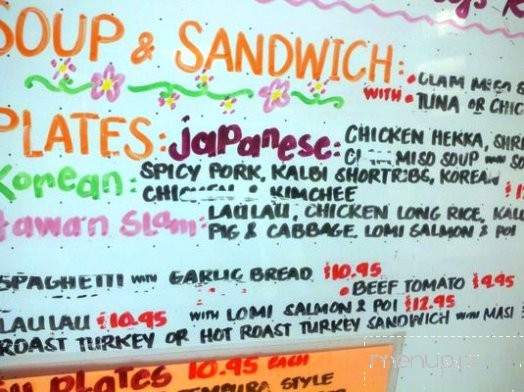 SOUP & SANDWICH: • CLAM MISO &
WITH • TUNA OR CHIC
PLATES: Japanese: CHICKEN HEKKA, SHRI
MISO SOUP WITH
Korean: SPICY PORK, KALBI SHORTRIBS, KOREAN
& KIMCHEE
Hawa'n Slam: LAULAU, CHICKEN LONG RICE, KAL
PIG & CABBAGE, LOMI SALMON & POI
SPAGHETTI WITH GARLIC BREAD $10.95
• BEEF TOMATO $9.95
LAULAU $10.95 WITH LOMI SALMON & POI $12.95
ROAST TURKEY OR HOT ROAST TURKEY SANDWICH WITH MASH
Plates 10.95 EACH
TEMPURA STYLE
menupix